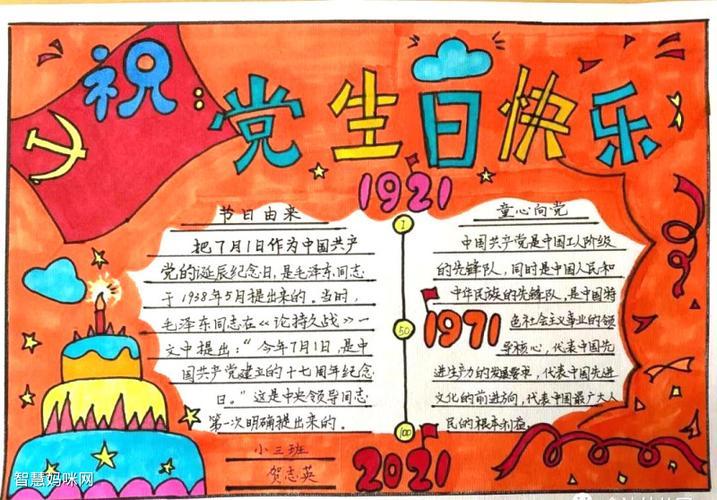 祝:党生日快乐
1921
节日由来
把7月1日作为中国共产
党的诞辰纪念日,是毛泽东同志
于1938年5月提出来的。当时,
毛泽东同志在《论持久战》一
文中提出:“今年7月1日,是中
国共产党建立的十七周年纪念
日。”这是中央领导同志
第一次明确提出来的。
小三班
贺志英
1
50
100
1971
2021
童心向党
中国共产党是中国工人阶级
的先锋队,同时是中国人民和
中华民族的先锋队,是中国特
色社会主义事业的领
导核心,代表中国先
进生产力的发展要求,代表中国先进
文化的前进方向,代表中国最广大人
民的根本利益
智慧妈咪网